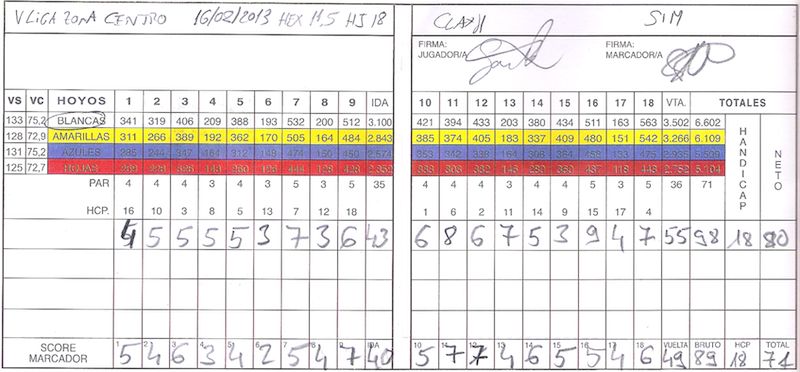 V LIGA ZONA CENTRO 16/02/2013 HEX 11,5 HJ 18 SIM
FIRMA: JUGADOR/A FIRMA: MARCADOR/A
VS VC HOYOS 1 2 3 4 5 6 7 8 9 IDA 10 11 12 13 14 15 16 17 18 VTA. TOTALES
133 75,2 BLANCAS 341 319 406 209 388 193 532 200 512 3.100 421 394 433 203 380 434 511 163 563 3.502 6.602
128 72,9 AMARILLAS 311 266 389 192 362 170 505 164 484 2.843 385 374 405 183 337 409 480 151 542 3.266 6.109
131 75,2 AZULES 285 244 347 164 312 149 474 150 450 2.574 353 342 338 164 306 364 458 133 475 2.935 5.509
125 72,7 ROJAS 2.352 2.752 5.104
HANDICAP
NETO
PAR 4 4 4 3 4 3 5 3 5 35 4 4 4 3 4 4 5 3 5 36 71
HCP. 16 10 3 8 5 13 7 12 18 1 6 2 11 14 9 15 17 4
4 5 5 5 5 3 7 3 6 43 6 8 6 7 5 3 9 4 7 55 98 18 80
1 2 3 4 5 6 7 8 9 IDA 10 11 12 13 14 15 16 17 18 VUELTA BRUTO HCP TOTAL
SCORE MARCADOR 5 4 6 3 4 2 5 4 7 40 5 7 7 4 6 5 5 4 6 49 89 18 71